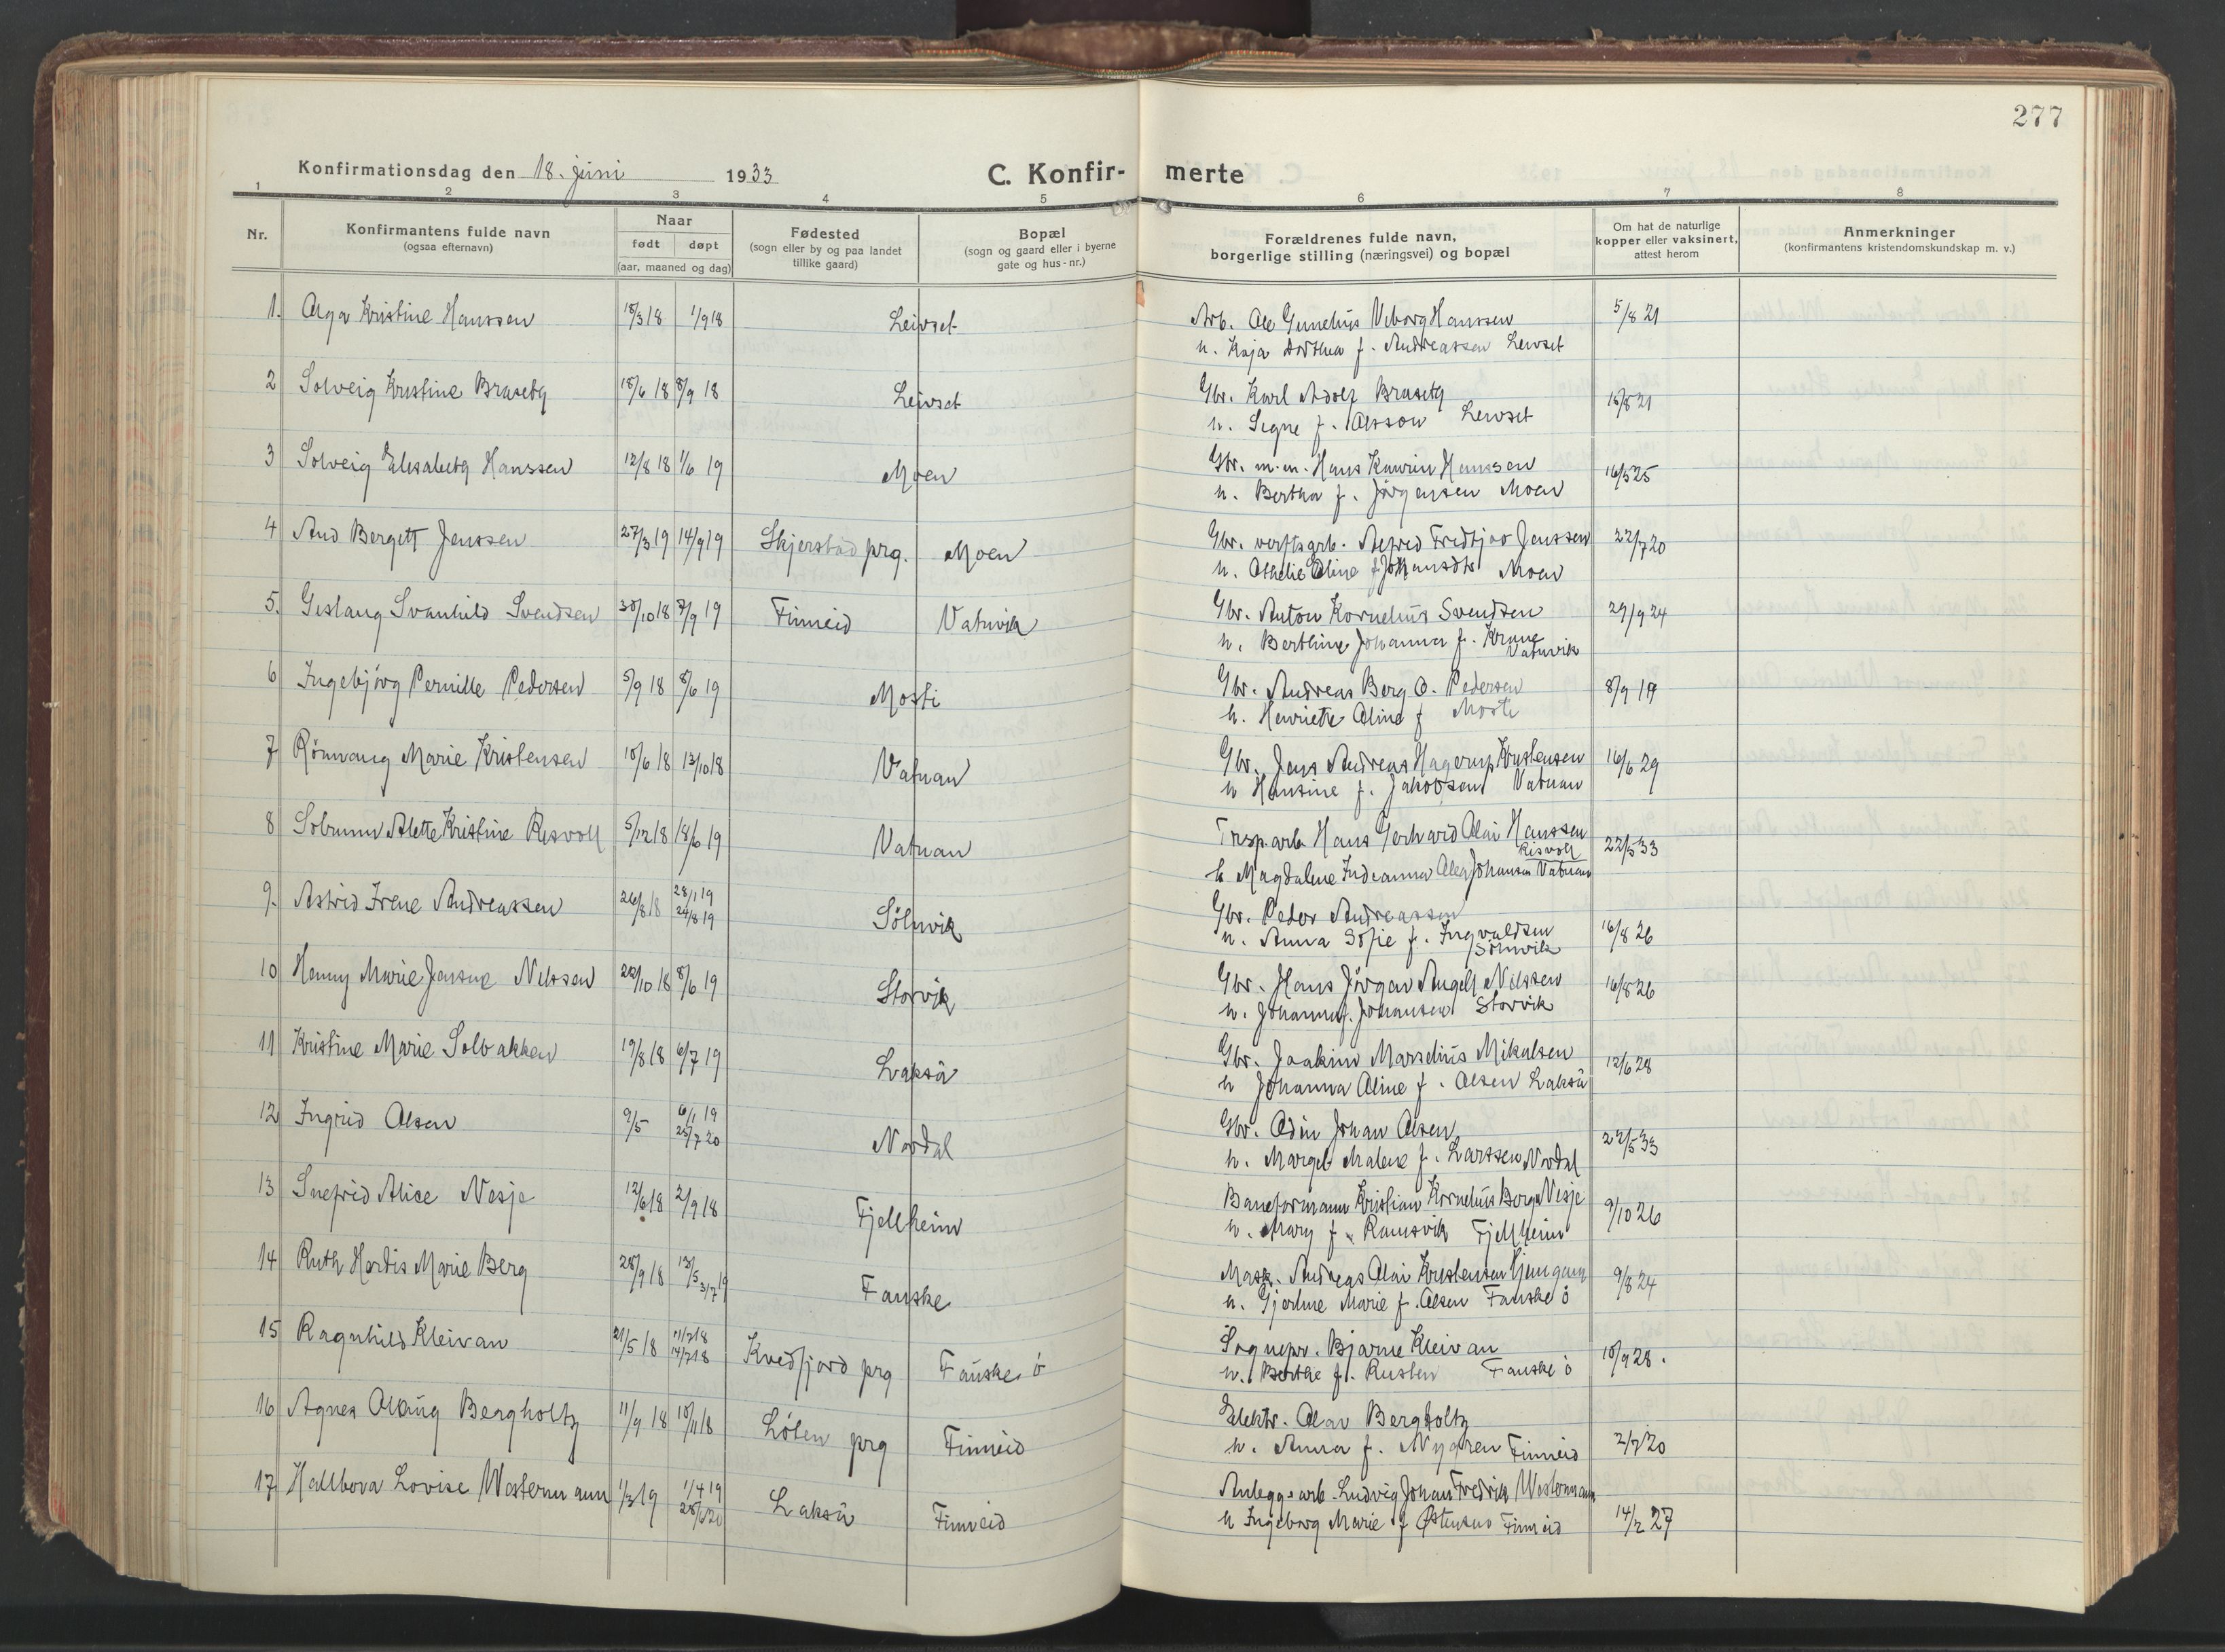 277
Konfirmationsdag den 18. juni 1933 C. Konfir- merte
1 2 3 4 5 6 7 8
Nr.
Konfirmantens fulde navn
(ogsaa efternavn)
Naar
født døpt
(aar, maaned og dag)
Fødested
(sogn eller by og paa landet
tillike gaard)
Bopæl
(sogn og gaard eller i byerne
gate og hus-nr.)
Forældrenes fulde navn,
borgerlige stilling (næringsvei) og bopæl
Om hat de naturlige
kopper eller vaksinert,
attest herom
Anmerkninger
(konfirmantens kristendomskundskap m. v.)
1. Aga Kristine Hanssen 18/3 18 1/9 18 Leivset Arb. Ole Gunelius Viborg Hanssen 5/8 21
h. Kaja Dorthea f. Andreassen Leivset
2 Solveig Kristine Braseth 18/6 18 8/9 18 Leivset Gbr. Karl Adolf Braseth 18/8 21
h. Signe f. Olsson Leivset
3 Solveig Elisabeth Hanssen 12/8 18 1/6 19 Moen Gbr. m.m. Hans Kawrin Hanssen 16/5 25
h. Bertha f. Jörgensen Moen
4 Aud Bergett Jenssen 27/3 19 14/9 19 Skjerstad prg. Moen Gbr. verftsarb. Alfred Fredtjov Jenssen 22/7 20
h. Othelie Oline f. Johansdtr Moen
5. Gislaug Svanhild Svendsen 30/10 18 7/9 19 Finneid Vatnvik Gbr. Anton Kornelius Svendsen 29/9 24
h. Berthine Johanna f. Krane
Vatnvik
6 Ingebjörg Pernille Pedersen 5/9 18 8/6 19 Mosti Gbr. Andreas Berg O. Pedersen 8/9 19
h. Henriette Oline f Mosti
7 Rönnaug Marie Kristensen 10/6 18 13/10 18 Vatnan Gbr. Jens Andreas Hagerup Kristensen 16/6 29
h Hansine f. Jakobsen Vatnan
8 Solrunn Alette Kristine Risvoll 5/12 18 18/6 19 Vatnan Trsp.arb Hans Gerhard Olai Hanssen 22/5 33
Risvoll
h Magdalene Indianna Olea Johansen Vatnan
9. Astrid Irene Andreassen 26/8 18 28/1 19 Sölnvik Gbr. Peder Andreassen 16/8 26
24/8 19 h. Anna Sofie f. Ingvaldsen
Sölnvik
10 Henny Marie Jensine Nilssen 22/10 18 8/6 19 Storvik Gbr. Hans Jörgen Angell Nilssen 16/8 26
h. Johanna f. Johansen Storvik
11 Kristine Marie Solbakken 19/8 18 6/7 19 Lakså Gbr. Joakim Marselius Mikalsen 12/6 28
h Johanna Oline f. Olsen Lakså
12 Ingrid Olsen 9/5 6/1 19 Nordal Gbr. Odin Johan Olsen 22/5 33
25/7 20 h. Marget Malene f. Larssen Nordal
13 Snefrid Alice Nesje 12/6 18 2/9 18 Fjellheim Baneformann Kristian Kornelius Berge Nesje 9/10 26
h. Mary f. Ramsvik Fjellheim
14 Ruth Hardis Marie Berg 28/9 18 13/5 Fauske Mask. Andreas Olai Kristensen 9/8 24
31/7 19 h. Gjertine Marie f. Olsen Fauske ö
15 Ragnhild Kleivan 21/5 18 11/7 18 Kvedfjord prg Fauske ö Sognepr. Bjarne Kleivan 10/9 28.
14/7 18 h. Berthe f. Rusten Fauske ö
16 Agnes Olaug Bergholtz 11/9 18 10/11 18 Löten prg Finneid Elektr. Olav Bergholtz 2/7 20
h. Anna f. Nygren Finneid
17 Hallbora Lovise Westermann 1/3 19 1/4 19 Lakså Finneid Anleggsarb. Ludvig Johan Fredrik Westermann 14/2 27
h Ingeborg Marie f Østensen Finneid